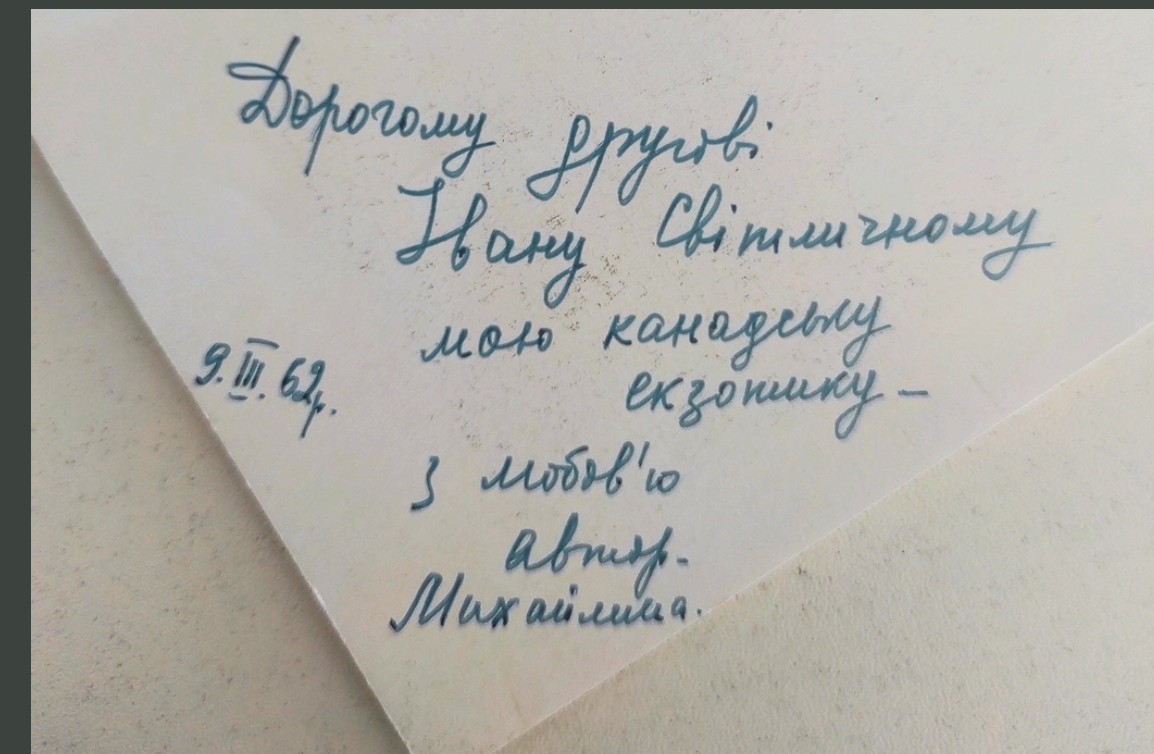 Дорогому другові
Івану Світличному
мою канадську
екзотику –
9.III.62р.
З любов'ю
автор.
Михайлина.